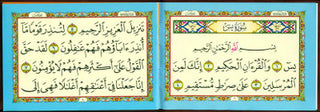 سورة يس
بِسْمِ اللَّهِ الرَّحْمَٰنِ الرَّحِيمِ
يسٓ وَالْقُرْآنِ الْحَكِيمِ إِنَّكَ لَمِنَ
الْمُرْسَلِينَ عَلَىٰ صِرَاطٍ مُسْتَقِيمٍ
تَنْزِيلَ الْعَزِيزِ الرَّحِيمِ لِتُنْذِرَ قَوْمًا مَا
أُنْذِرَ آبَاؤُهُمْ فَهُمْ غَافِلُونَ لَقَدْ حَقَّ
الْقَوْلُ عَلَىٰ أَكْثَرِهِمْ فَهُمْ لَا يُؤْمِنُونَ
إِنَّا جَعَلْنَا فِي أَعْنَاقِهِمْ أَغْلَالًا فَهِيَ إِلَى